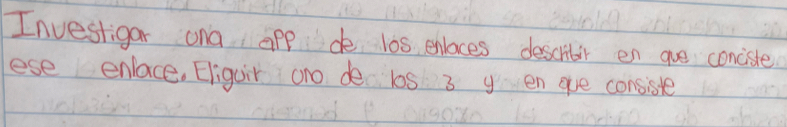 Investigar una app de los enlaces describir en que conciste
ese enlace. Eliguir uno de los 3 y en que consiste